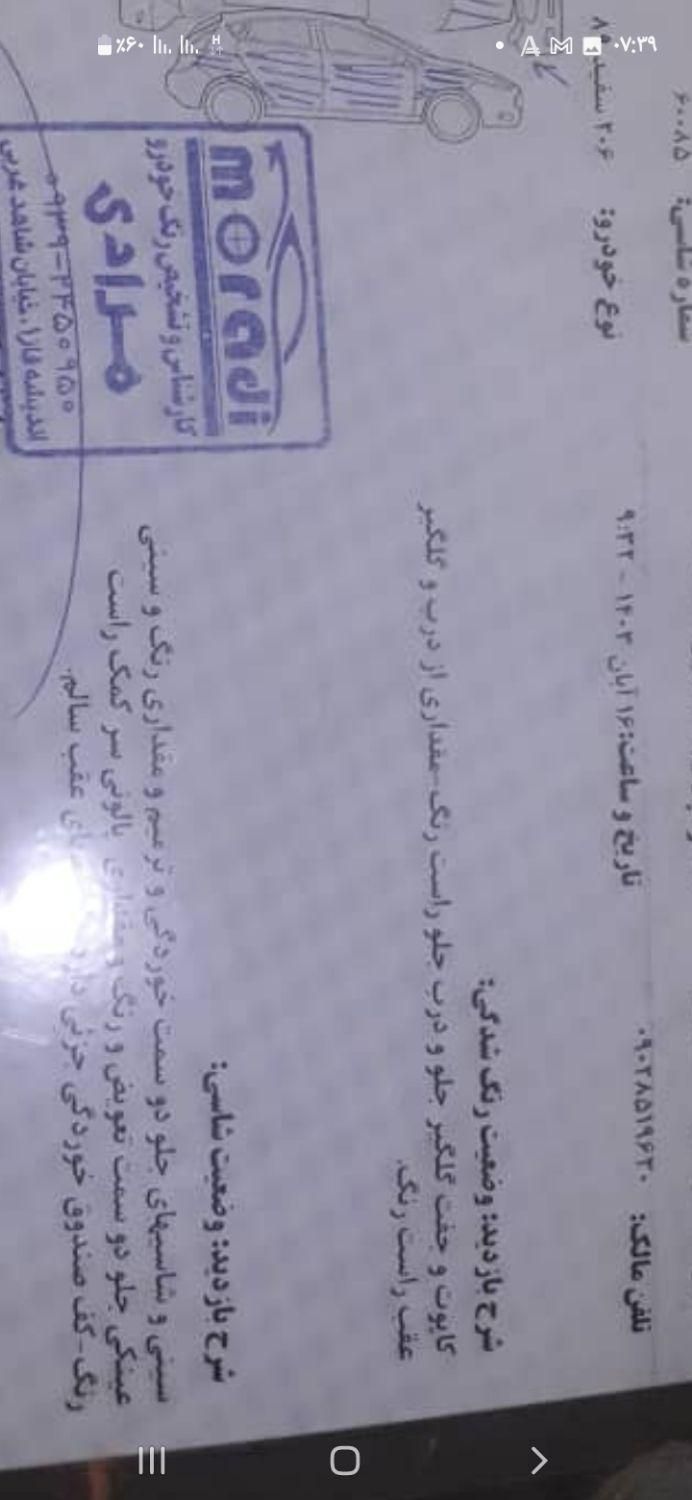 ۰۷:۳۹
٪۶۰
شماره شاسی: ۶۰۰۸۵
نوع خودرو: ۲۰۶ سفید ۸۵
تلفن مالک: ۰۹۰۲۸۵۱۹۶۲۰
تاریخ و ساعت: ۱۶ آبان ۱۴۰۳ - ۹:۳۲
شرح بازدید: وضعیت رنگ شدگی:
کاپوت و جفت گلگیر جلو و درب جلو راست رنگ-مقداری از درب و گلگیر
عقب راست رنگ.
شرح بازدید: وضعیت شاسی:
سینی و شاسیهای جلو دو سمت خوردگی و ترمیم و مقداری رنگ و سینی
عینکی جلو دو سمت تعویض و رنگ و مقداری پالونی سر کمک راست
رنگ-کف صندوق خوردگی جزئی دارد عقب سالم.
moradi
کارشناس و تشخیص رنگ خودرو
مرادی
۰۹۳۹-۲۴۵۰۹۵۰
اندیشه فاز۱، خیابان شاهد غربی